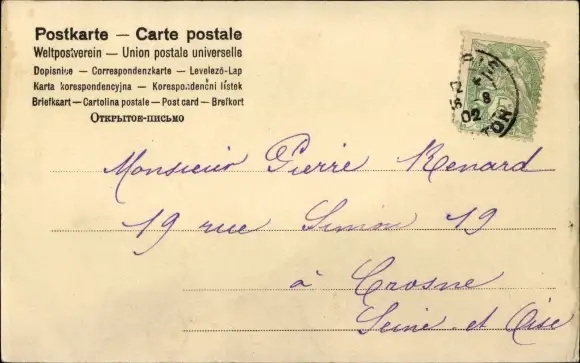 Postkarte — Carte postale
Weltpostverein — Union postale universelle
Dopisnice — Correspondenzkarte — Levelező-Lap
Karta korespondencyjna — Korespondenční lístek
Briefkaart — Cartolina postale — Post card — Brefkort
Открытое-письмо
Monsieur Pierre Renard
19 rue Simon 19
à Crosne
Seine et Oise
02